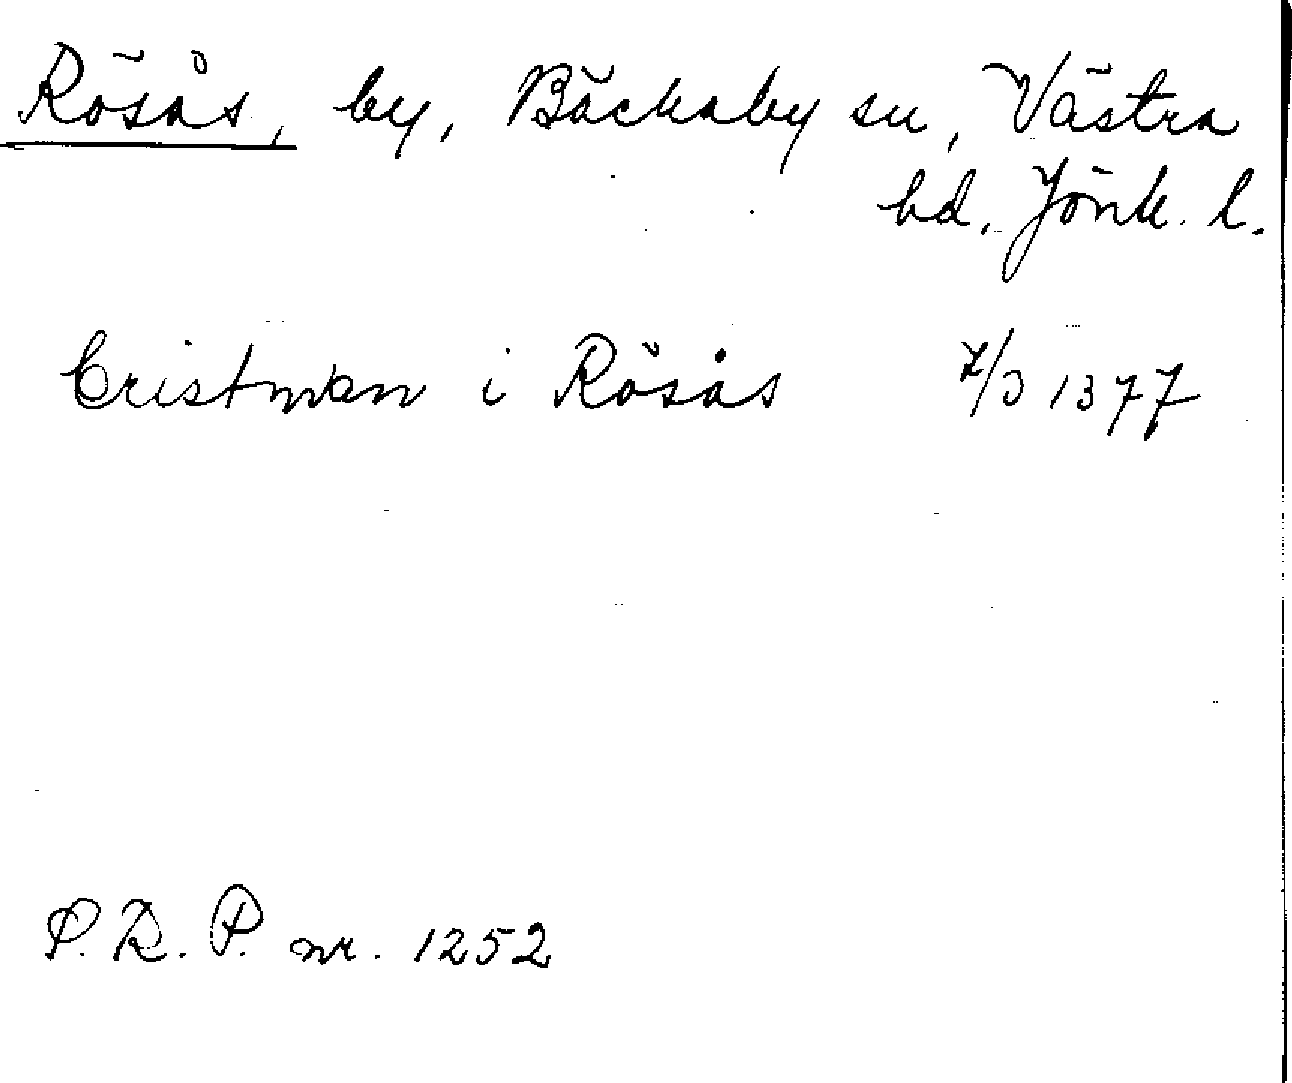 Rösås, by, Bäckaby sn, Västra
hd. Jönk. l.
Cristman i Rösås 7/3 1377
P. R. P. nr. 1252